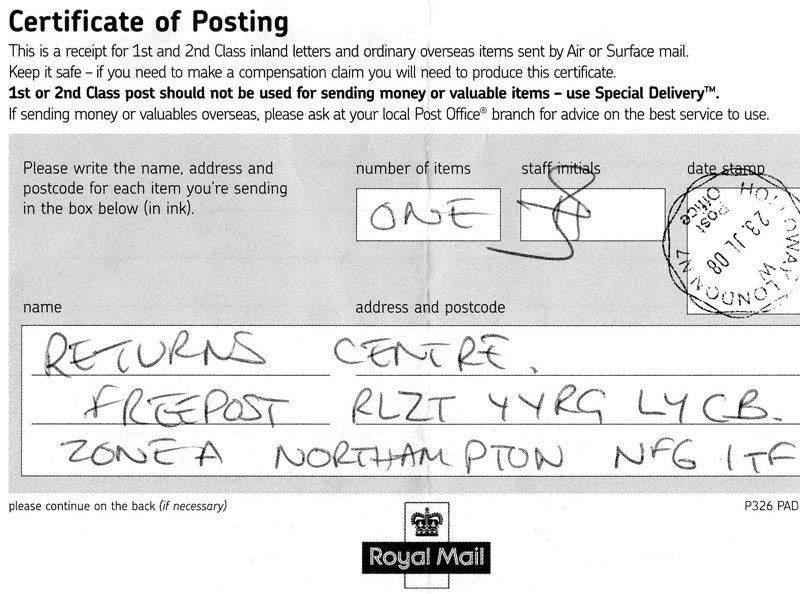 Certificate of Posting
This is a receipt for 1st and 2nd Class inland letters and ordinary overseas items sent by Air or Surface mail.
Keep it safe – if you need to make a compensation claim you will need to produce this certificate.
1st or 2nd Class post should not be used for sending money or valuable items – use Special Delivery™.
If sending money or valuables overseas, please ask at your local Post Office® branch for advice on the best service to use.
Please write the name, address and
postcode for each item you're sending
in the box below (in ink).
number of items
staff initials
date stamp
ONE
HOLLOWAY LONDON N7
Post
Office
23. JL 08
name
address and postcode
RETURNS CENTRE.
FREEPOST RLZT YYRG LYCB.
ZONE A NORTHAMPTON NFG 1TF
please continue on the back (if necessary)
P326 PAD
Royal Mail